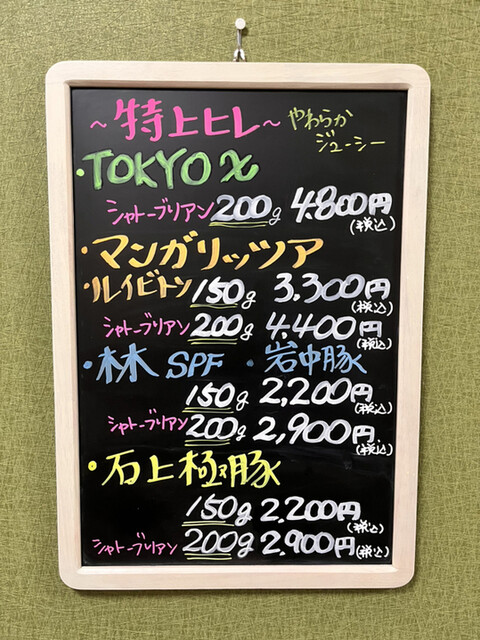 ~特上ヒレ~ やわらか
ジューシー
・TOKYO X
シャトーブリアン 200g 4.800円
(税込)
・マンガリッツア
・ルイビトン 150g 3.300円
(税込)
シャトーブリアン 200g 4.400円
(税込)
・林SPF ・岩中豚
150g 2,200円
(税込)
シャトーブリアン 200g 2,900円
(税込)
・石上極豚
150g 2.200円
(税込)
シャトーブリアン 200g 2.900円
(税込)